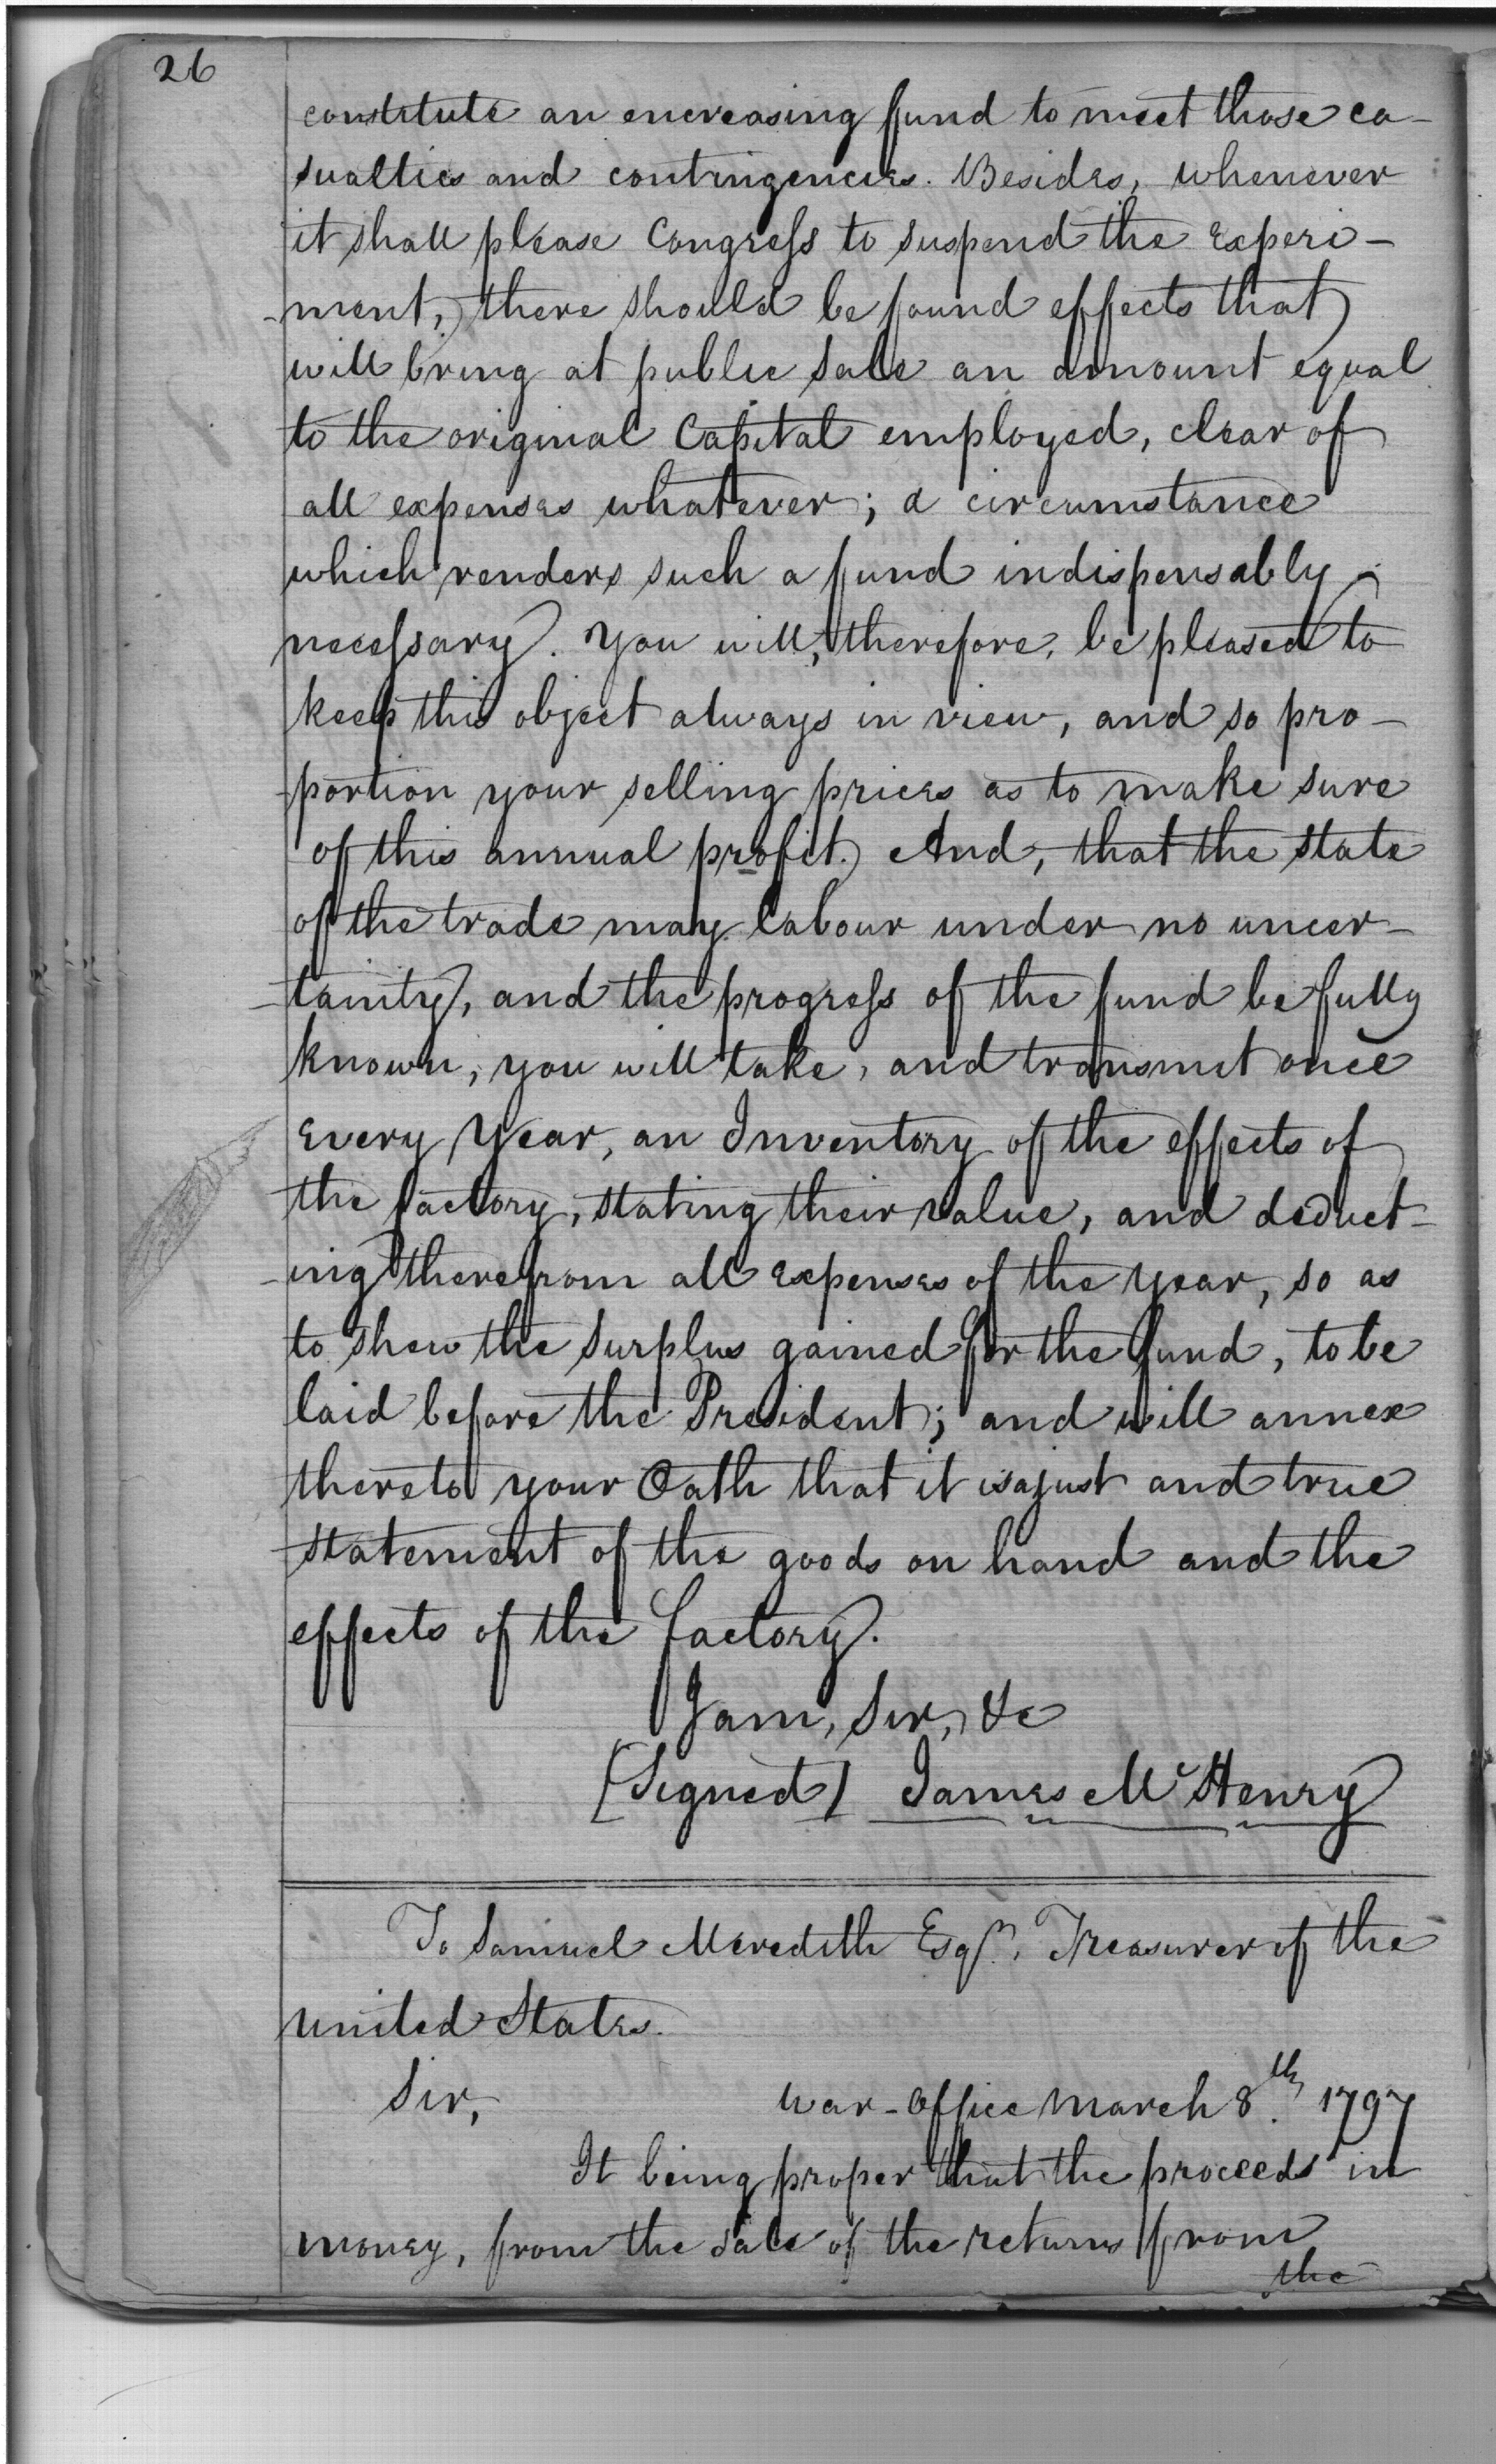 26
constitute an encreasing fund to meet those ca-
sualties and contingencies. Besides, whenever
it shall please Congress to suspend the experi-
-ment, there should be found effects that
will bring at public sale an amount equal
to the original Capital employed, clear of
all expenses whatever; a circumstance
which renders such a fund indispensably
necessary. You will, therefore, be pleased to
keep this object always in view, and so pro-
-portion your selling prices as to make sure
of this annual profit. And, that the state
of the trade may labour under no uncer-
-tainty, and the progress of the fund be fully
known, you will take, and transmit once
every Year, an Inventory of the effects of
the factory, stating their value, and deduct-
-ing therefrom all expenses of the year, so as
to shew the surplus gained for the fund, to be
laid before the President; and will annex
thereto your Oath that it is a just and true
statement of the goods on hand and the
effects of the factory.
I am, Sir, &c
[Signed] James McHenry
To Samuel Meredith Esqr. Treasurer of the
United States.
Sir, War-Office March 8th. 1797
It being proper that the proceeds in
money, from the sale of the returns from
the